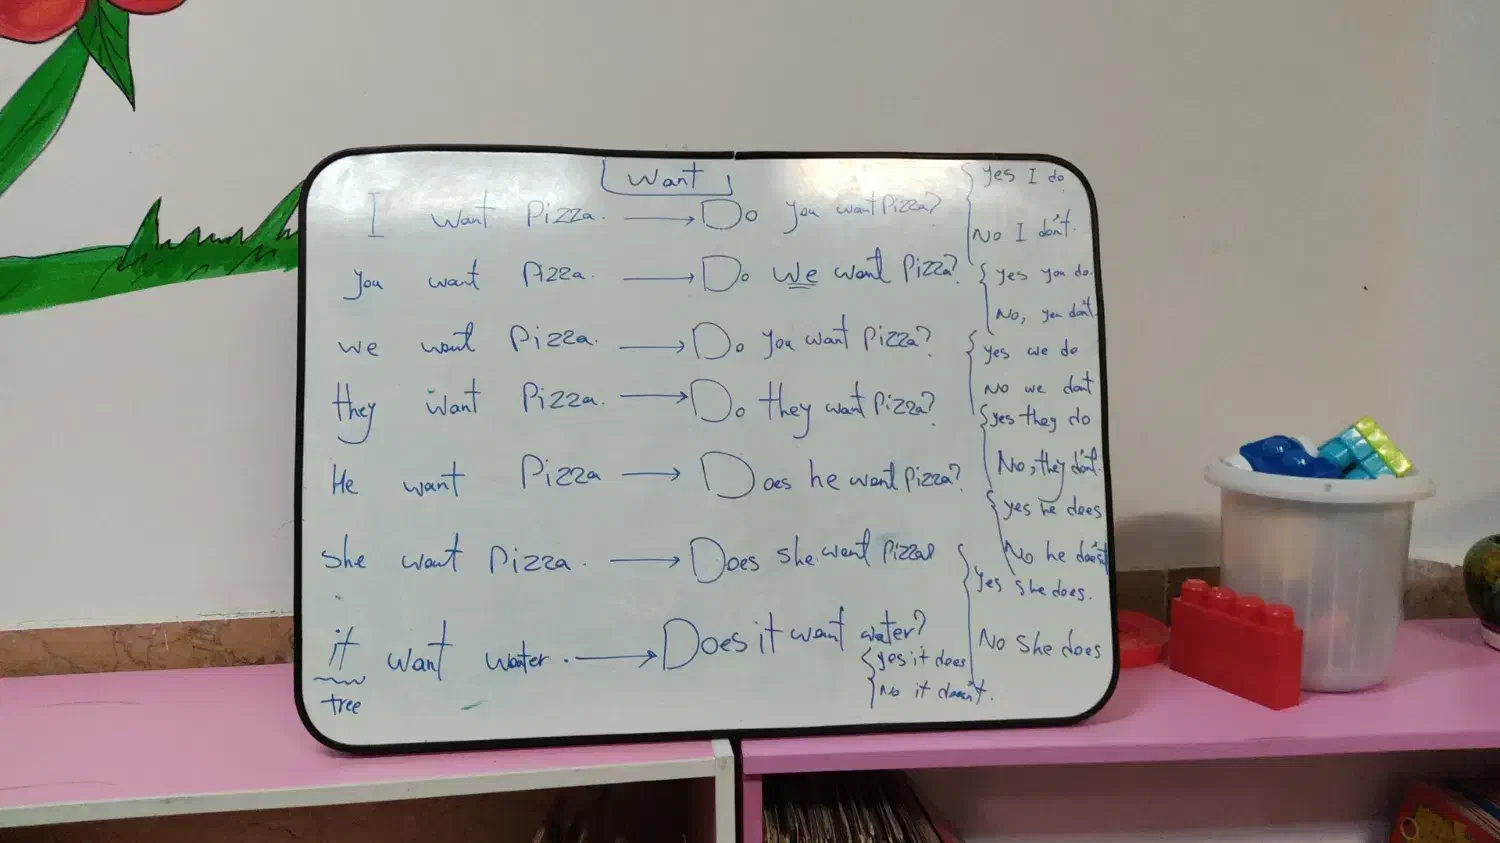 Want
I want Pizza. → Do you want Pizza?
yes I do
No I don't.
you want Pizza. → Do we want Pizza?
yes you do.
No, you don't.
we want Pizza. → Do you want Pizza?
yes we do
No we dont
they want Pizza. → Do they want Pizza?
yes they do
No, they don't.
He want Pizza → Does he want Pizza?
yes he does
No he doesn't
She want Pizza. → Does she want Pizza?
Yes she does.
No she does
it want water. → Does it want water?
tree
yes it does
No it doesn't.